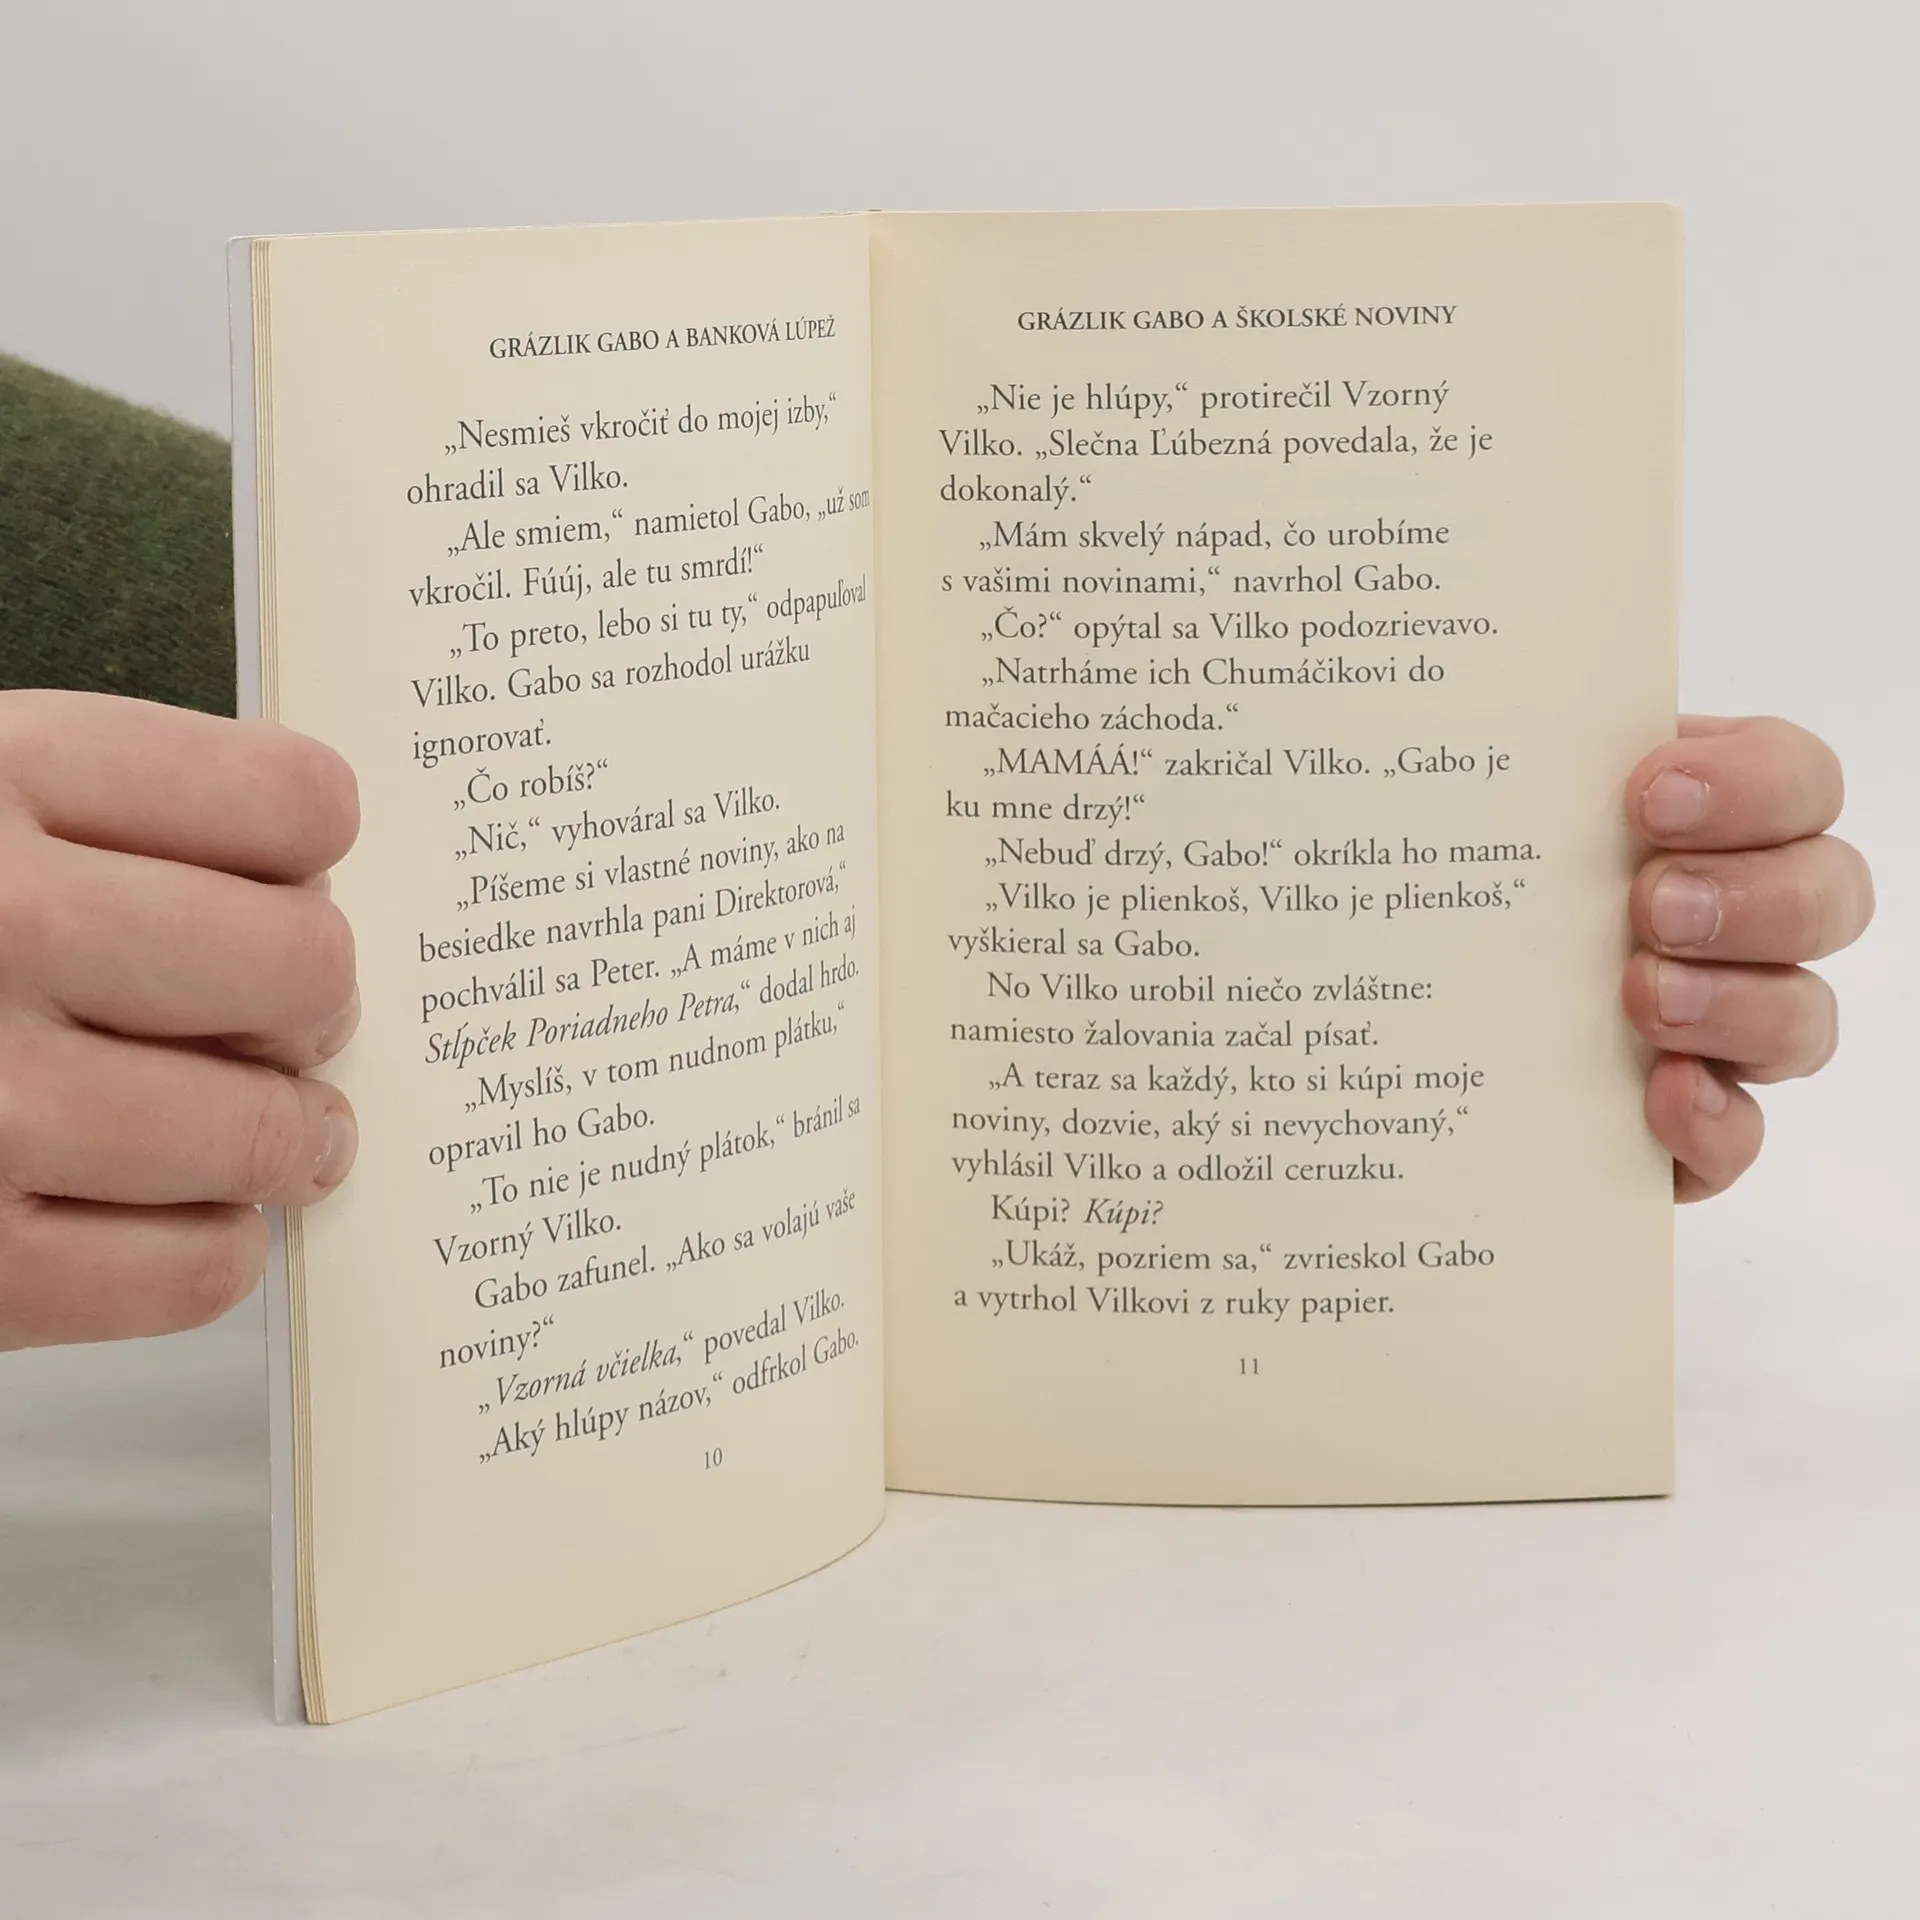 GRÁZLIK GABO A BANKOVÁ LÚPEŽ
„Nesmieš vkročiť do mojej izby,“
ohradil sa Vilko.
„Ale smiem,“ namietol Gabo, „už som
vkročil. Fúúj, ale tu smrdí!“
„To preto, lebo si tu ty,“ odpapuľoval
Vilko. Gabo sa rozhodol urážku
ignorovať.
„Čo robíš?“
„Nič,“ vyhováral sa Vilko.
„Píšeme si vlastné noviny, ako na
besiedke navrhla pani Direktorová,“
pochválil sa Peter. „A máme v nich aj
Stĺpček Poriadneho Petra,“ dodal hrdo.
„Myslíš, v tom nudnom plátku,“
opravil ho Gabo.
„To nie je nudný plátok,“ bránil sa
Vzorný Vilko.
Gabo zafunel. „Ako sa volajú vaše
noviny?“
„Vzorná včielka,“ povedal Vilko.
„Aký hlúpy názov,“ odfrkol Gabo.
10
GRÁZLIK GABO A ŠKOLSKÉ NOVINY
„Nie je hlúpy,“ protirečil Vzorný
Vilko. „Slečna Ľúbezná povedala, že je
dokonalý.“
„Mám skvelý nápad, čo urobíme
s vašimi novinami,“ navrhol Gabo.
„Čo?“ opýtal sa Vilko podozrievavo.
„Natrháme ich Chumáčikovi do
mačacieho záchoda.“
„MAMÁÁ!“ zakričal Vilko. „Gabo je
ku mne drzý!“
„Nebuď drzý, Gabo!“ okríkla ho mama.
„Vilko je plienkoš, Vilko je plienkoš,“
vyškieral sa Gabo.
No Vilko urobil niečo zvláštne:
namiesto žalovania začal písať.
„A teraz sa každý, kto si kúpi moje
noviny, dozvie, aký si nevychovaný,“
vyhlásil Vilko a odložil ceruzku.
Kúpi? Kúpi?
„Ukáž, pozriem sa,“ zvrieskol Gabo
a vytrhol Vilkovi z ruky papier.
11